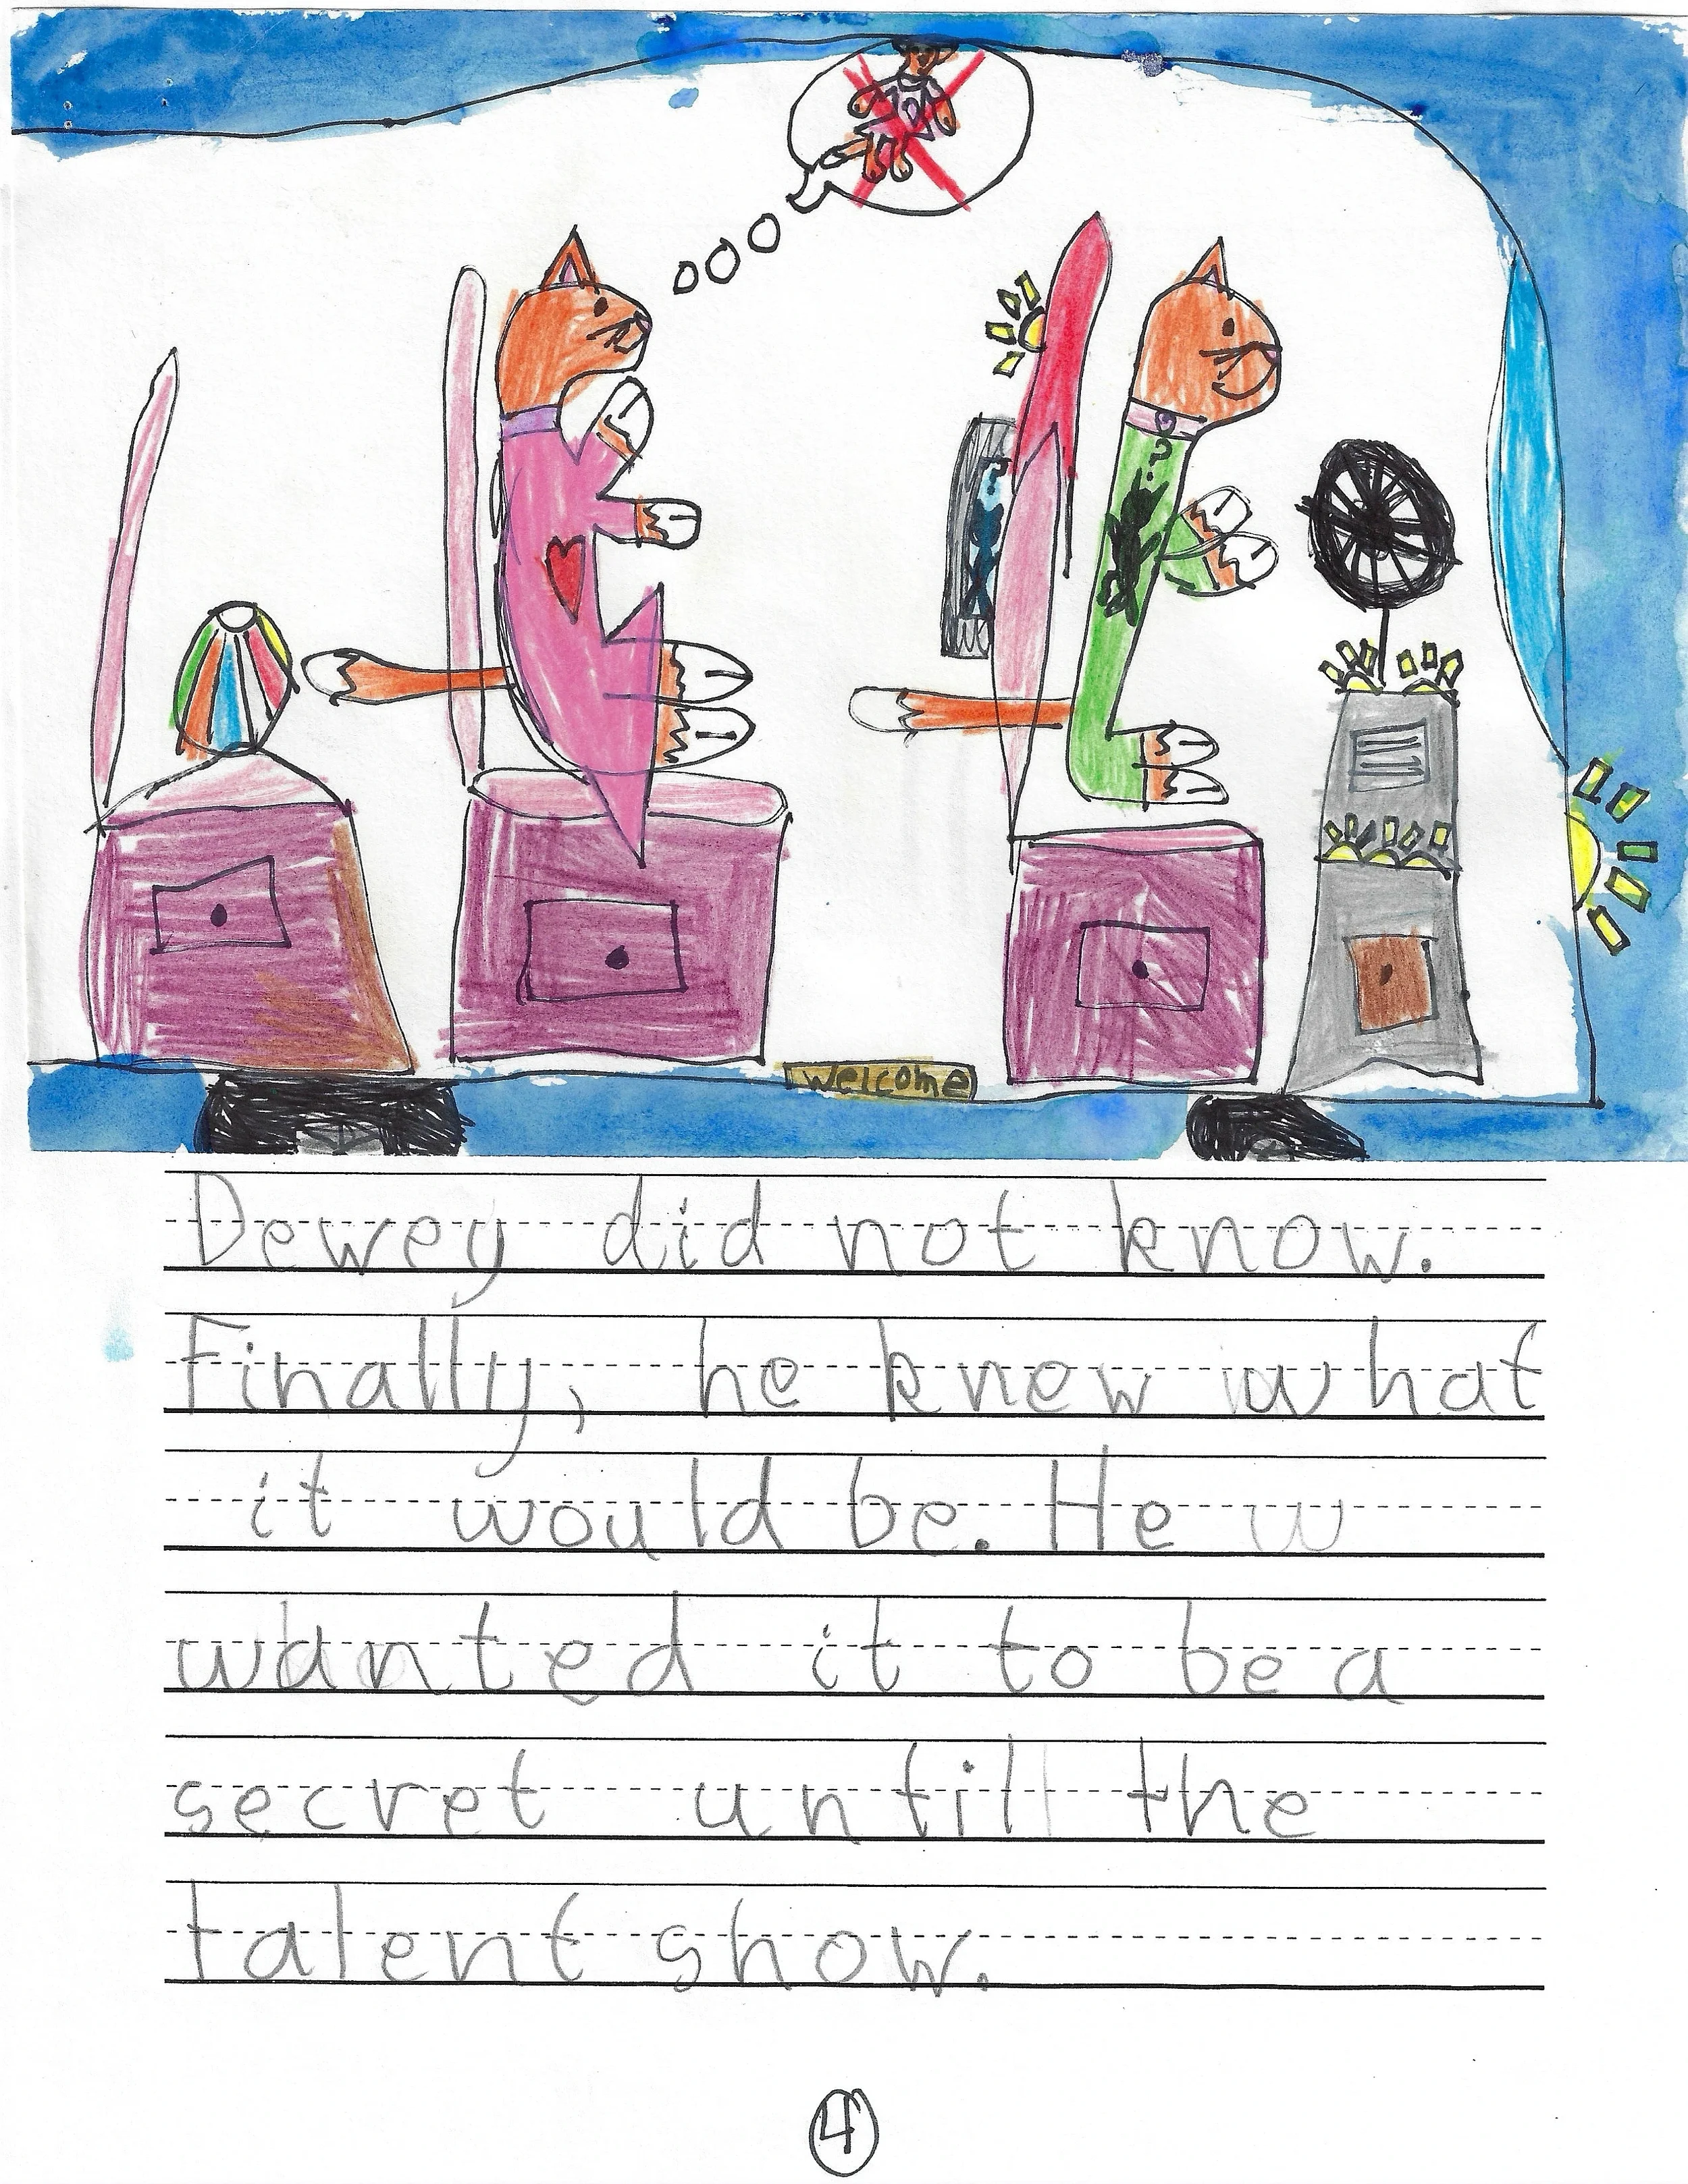 ?
?
welcome
Dewey did not know.
Finally, he knew what
it would be. He w
wanted it to be a
secret until the
talent show.
4